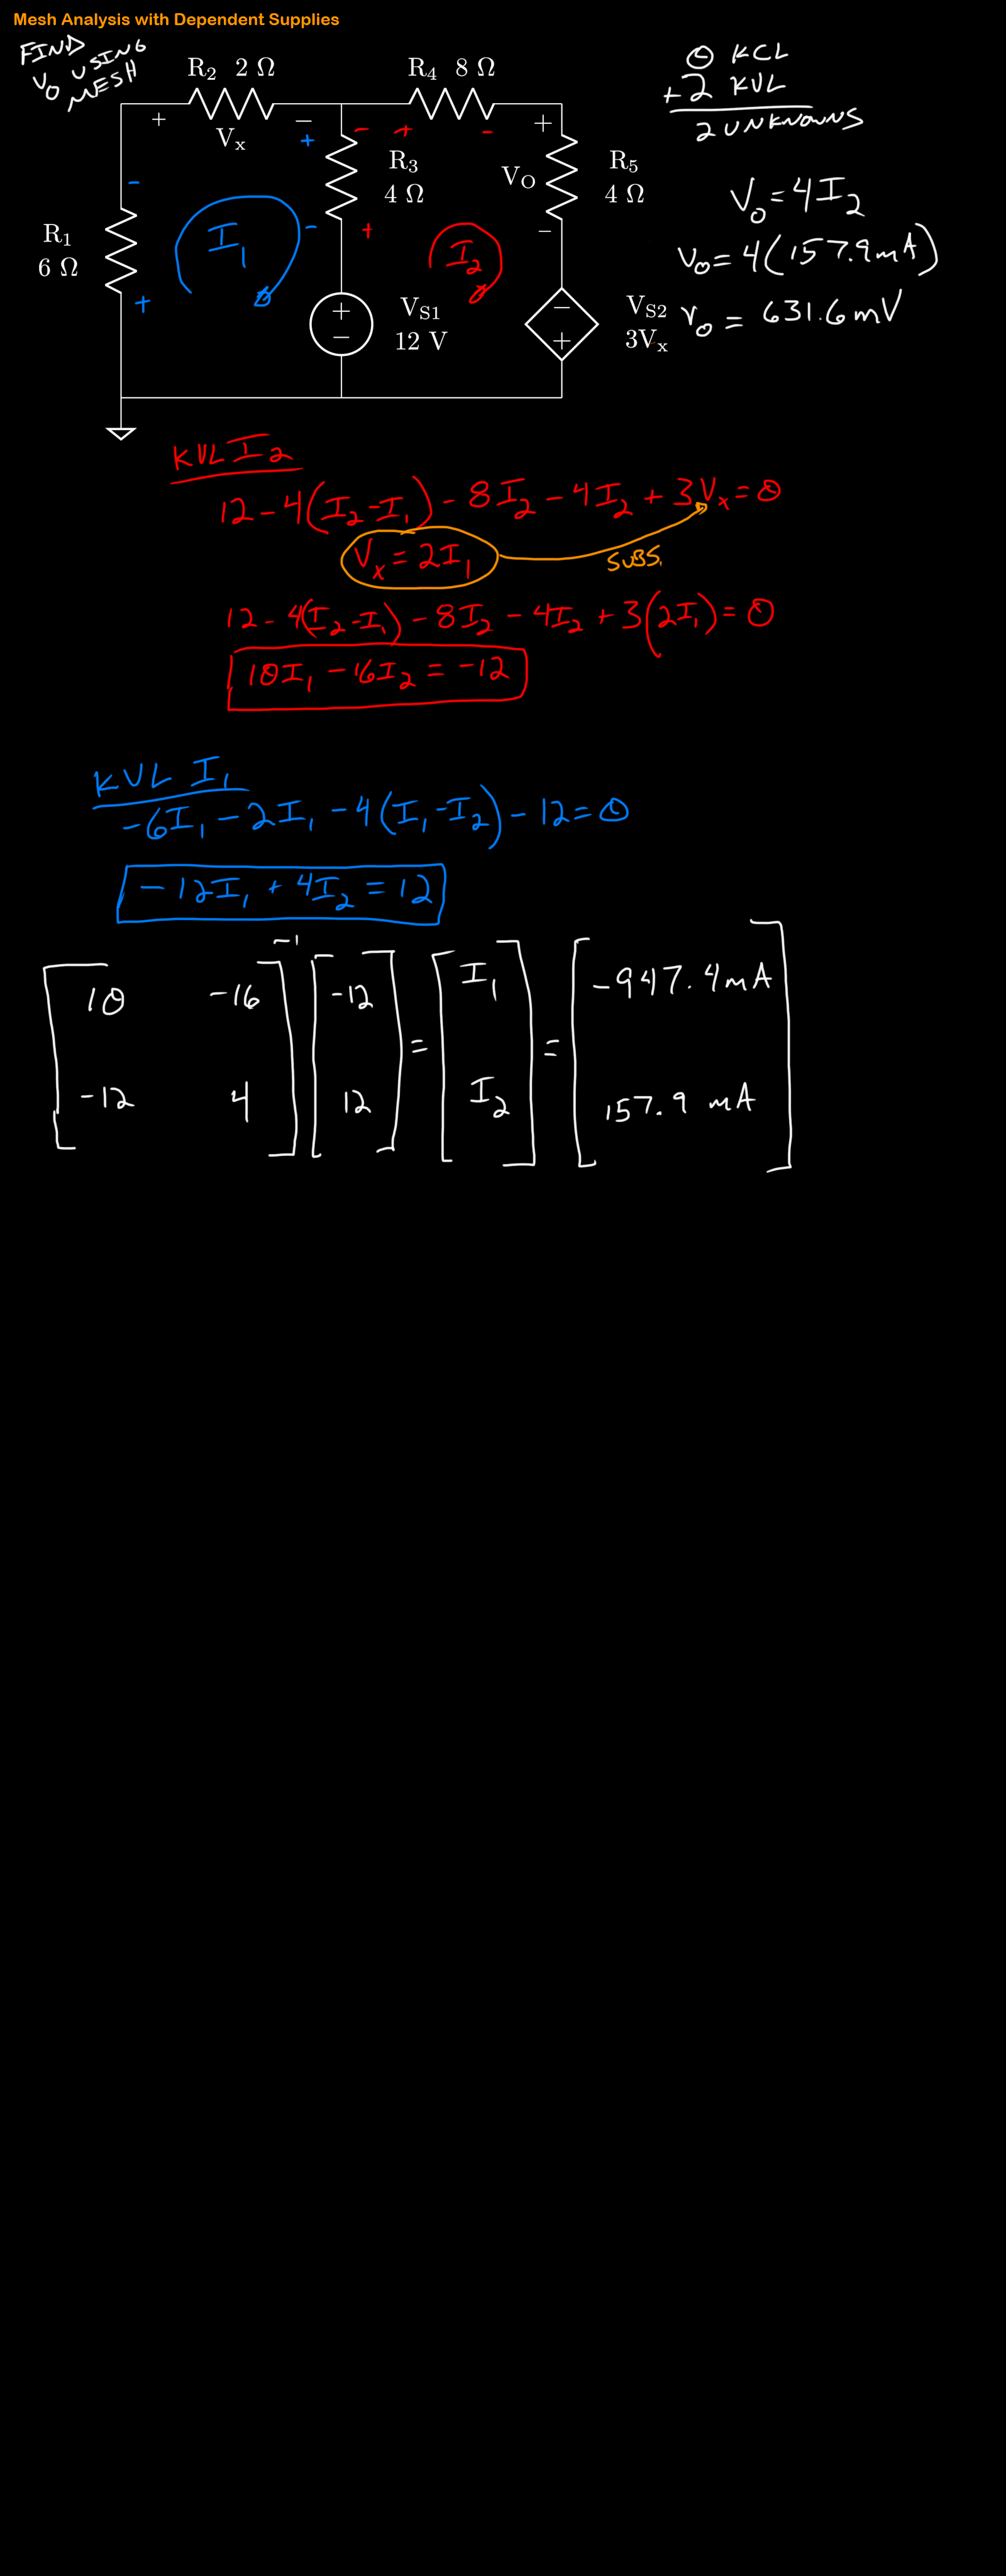 Mesh Analysis with Dependent Supplies
FIND
V₀ USING
MESH
R₂ 2 Ω
+ Vₓ −
R₄ 8 Ω
R₁
6 Ω
R₃
4 Ω
R₅
4 Ω
+
V_O
−
I₁
I₂
+
−
V_S1
12 V
−
+
V_S2
3Vₓ
0 KCL
+2 KVL
2 UNKNOWNS
V₀ = 4I₂
V₀ = 4(157.9mA)
V₀ = 631.6mV
KVL I₂
12 - 4(I₂-I₁) - 8I₂ - 4I₂ + 3Vₓ = 0
Vₓ = 2I₁
SUBS.
12 - 4(I₂-I₁) - 8I₂ - 4I₂ + 3(2I₁) = 0
10I₁ - 16I₂ = -12
KVL I₁
-6I₁ - 2I₁ - 4(I₁-I₂) - 12 = 0
-12I₁ + 4I₂ = 12
[10 -16; -12 4]⁻¹ [-12; 12] = [I₁; I₂] = [-947.4mA; 157.9 mA]